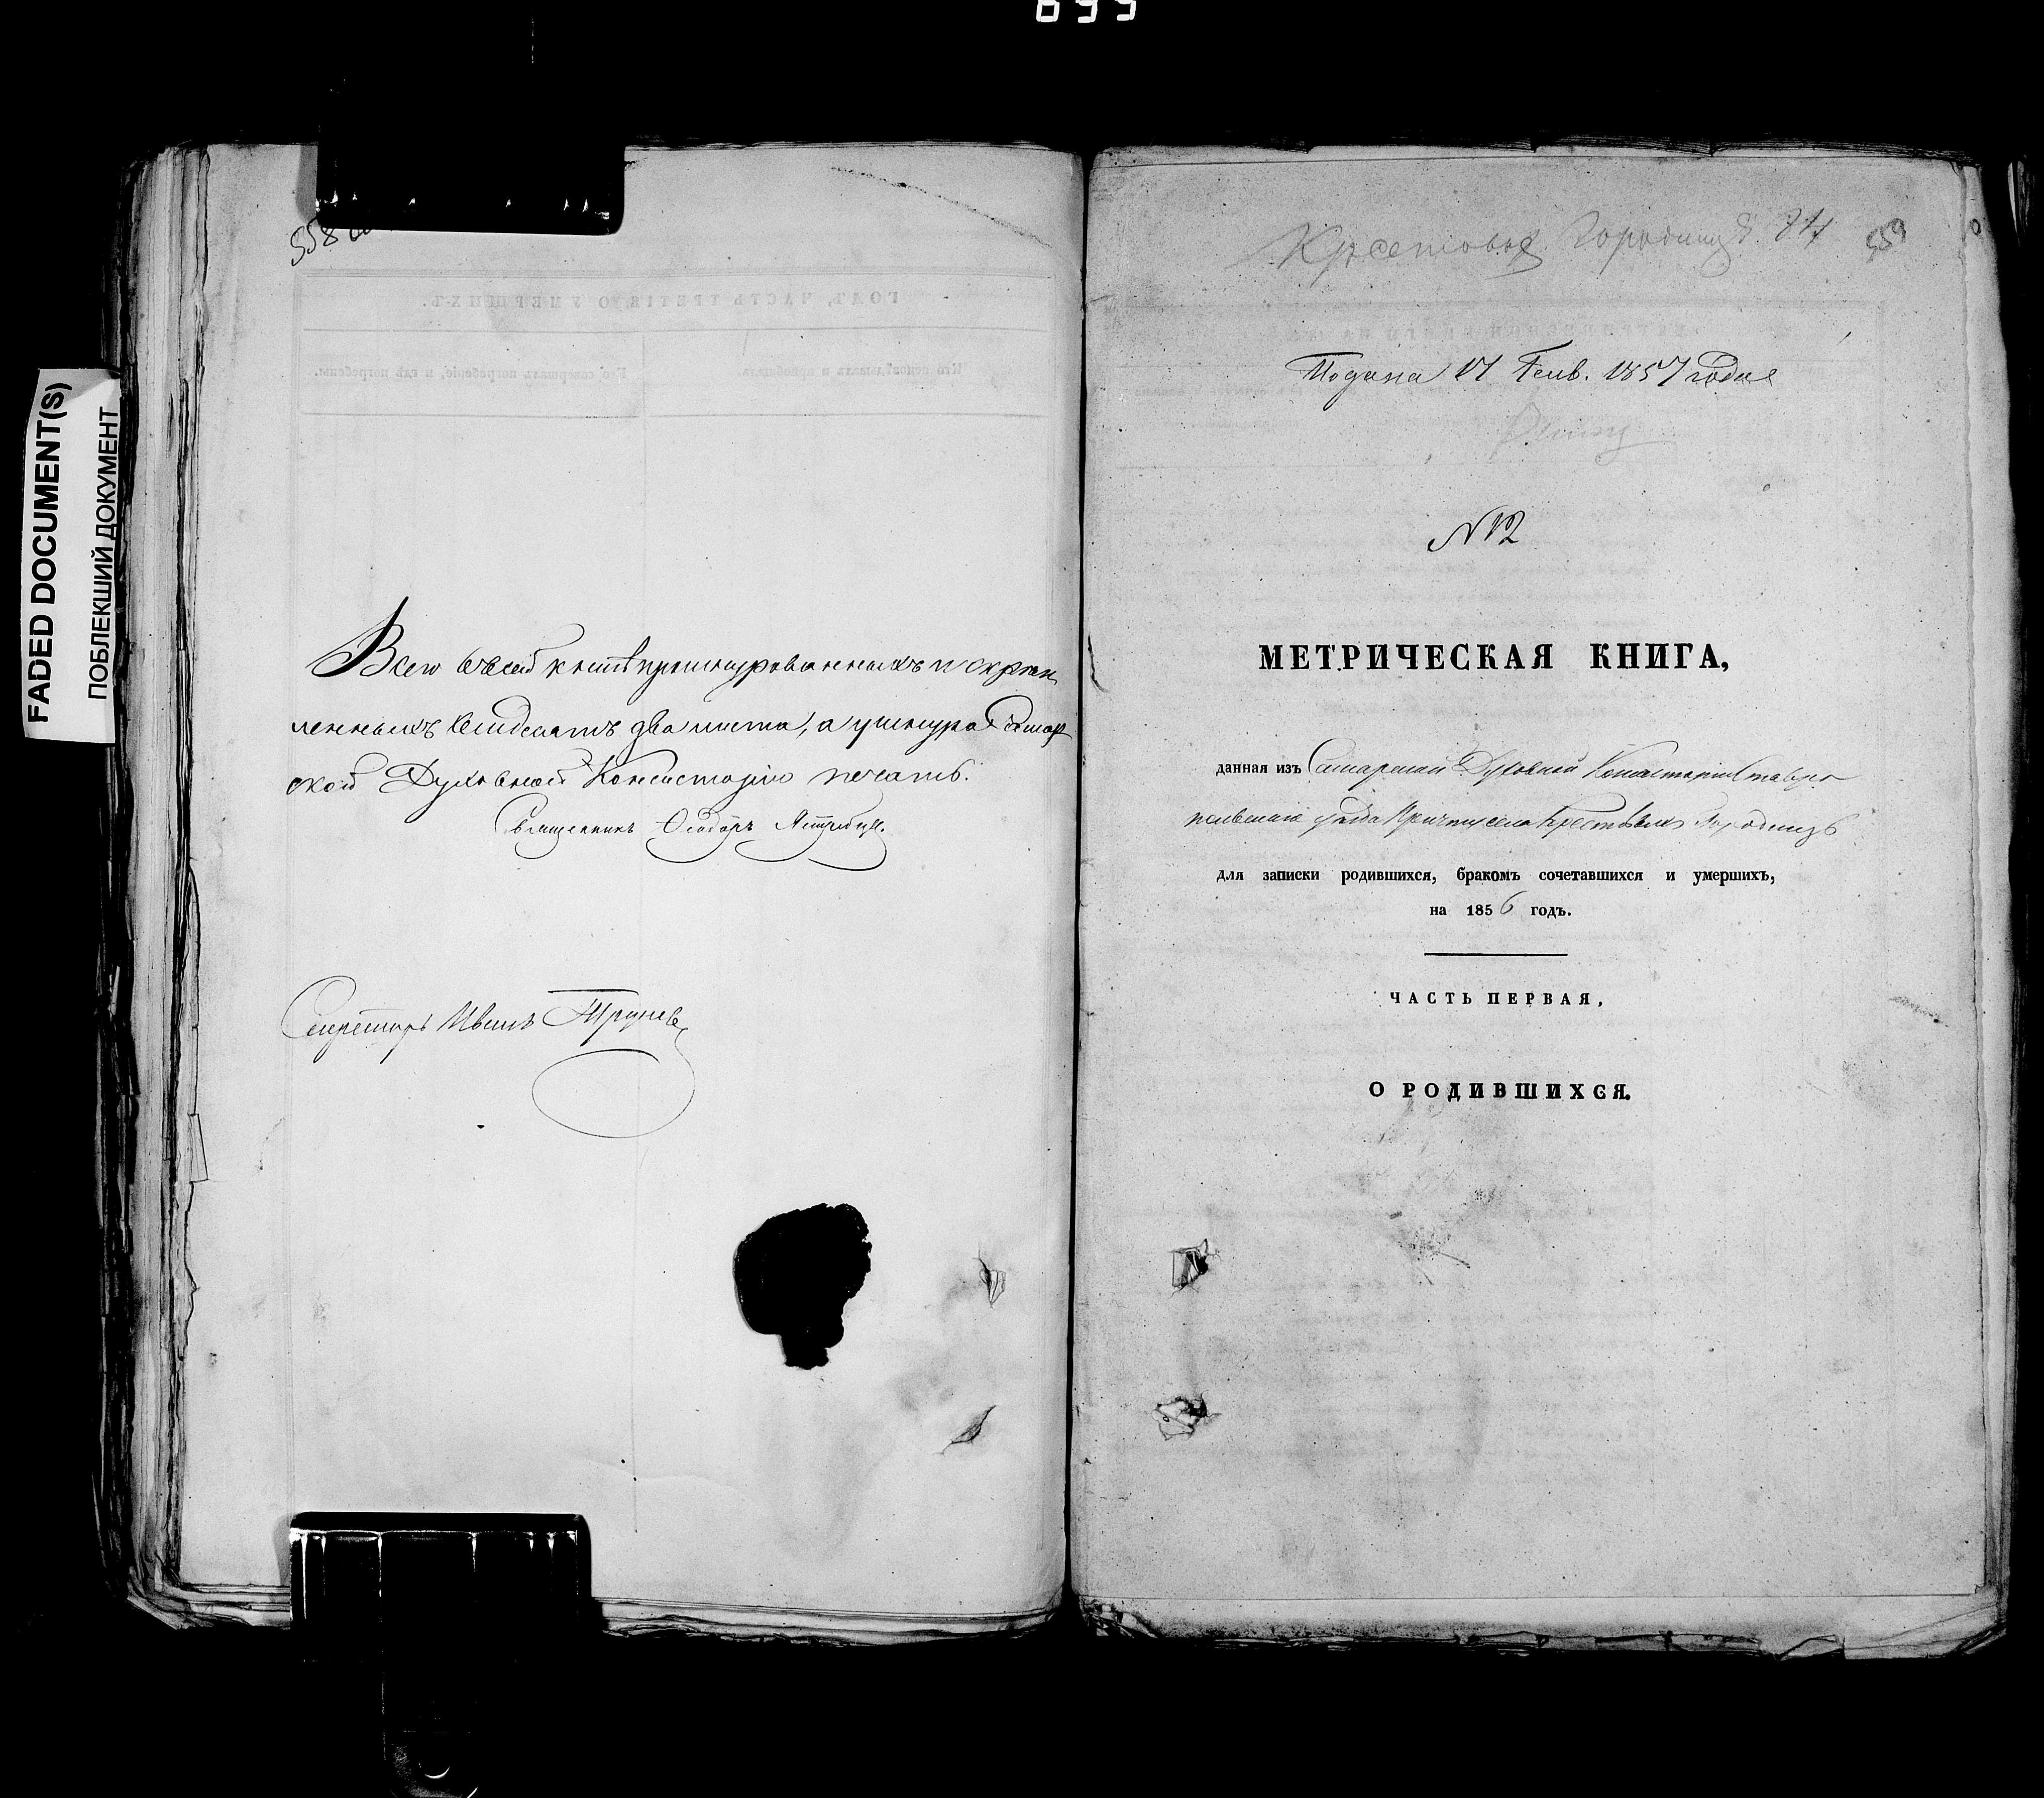 699
FADED DOCUMENT(S)
ПОБЛЕКШИЙ ДОКУМЕНТ
558
ГОДЪ, ЧАСТЬ ТРЕТІЯ, О УМЕРШИХЪ.
Кто исповѣдывалъ и пріобщалъ.
Кто совершалъ погребеніе, и гдѣ погребены.
Всего въ сей книгѣ прошнурованныхъ и скрѣп
ленныхъ два листа, а у шнура Самар
ской Духовной Консисторіи печать.
Священникъ Ѳеодоръ
Секретарь Иванъ
Крестовые Городищи 84
559
Подана 17 Генв. 1857 года
N12
МЕТРИЧЕСКАЯ КНИГА,
данная изъ Самарской Духовной Консисторіи Ставро
польскаго уѣзда Причту села Крестовыхъ Городищъ
для записки родившихся, бракомъ сочетавшихся и умершихъ,
на 1856 годъ.
ЧАСТЬ ПЕРВАЯ,
О РОДИВШИХСЯ.